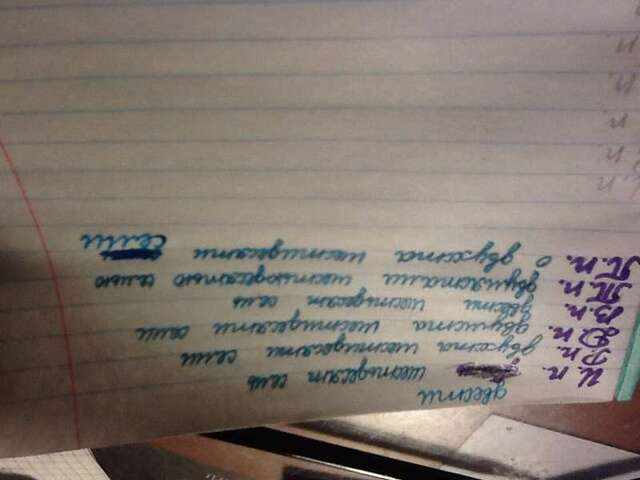 двести
И. п. шестьдесят семь
Р. п. двухста шестидесяти семи
Д. п. двумста шестидесяти семи
В. п. двести шестьдесят семь
Т. п. двумястами шестьюдесятью семью
П. п. о двухста шестидесяти семи